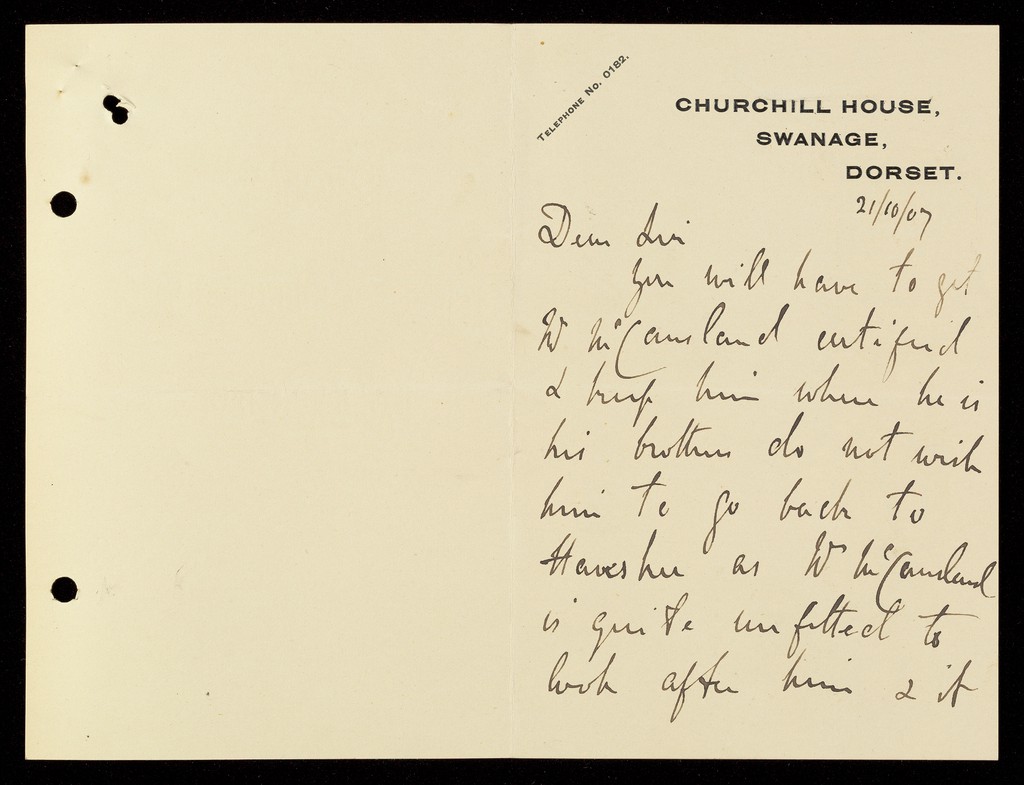 TELEPHONE No. 0182.
CHURCHILL HOUSE,
SWANAGE,
DORSET.
21/10/07
Dear Sir
you will have to get
Mr McCausland certified
& keep him where he is
his brothers do not wish
him to go back to
as Mr McCausland
is quite unfitted to
look after him & it